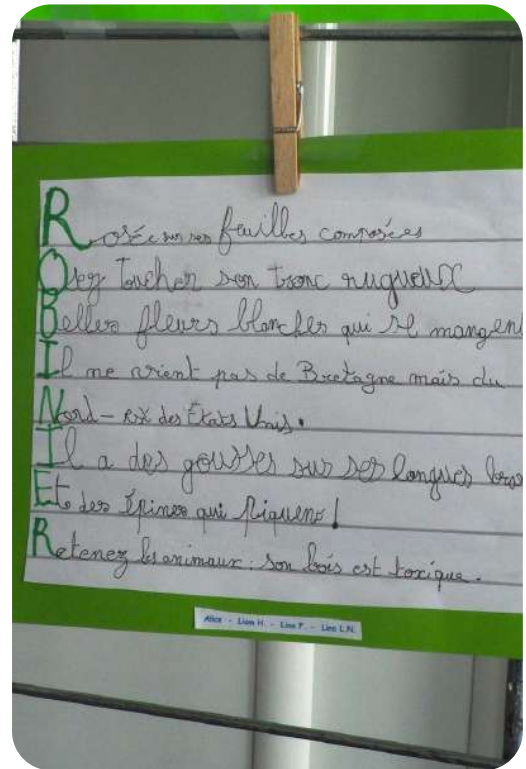 Rosée sur ses feuilles composées
Osez toucher son tronc rugueux
Belles fleurs blanches qui se mangen
Il ne vient pas de Bretagne mais du
Nord-Est des États Unis.
Il a des gousses sur ses longues bras
Et des épines qui piquent!
Retenez les animaux: son bois est toxique.
Alice - Liam H. - Line P. - Lino L.N.